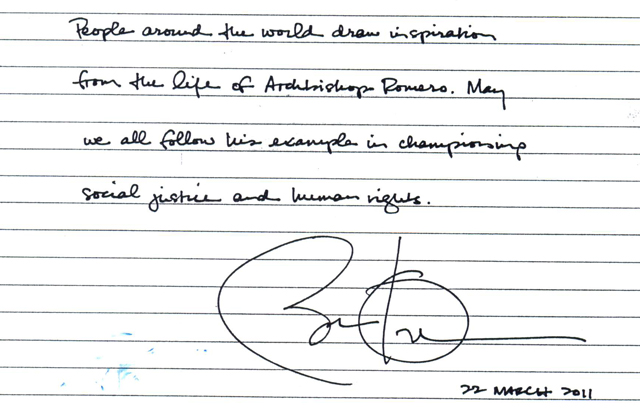 People around the world draw inspiration
from the life of Archbishop Romero. May
we all follow his example in championing
social justice and human rights.
22 MARCH 2011